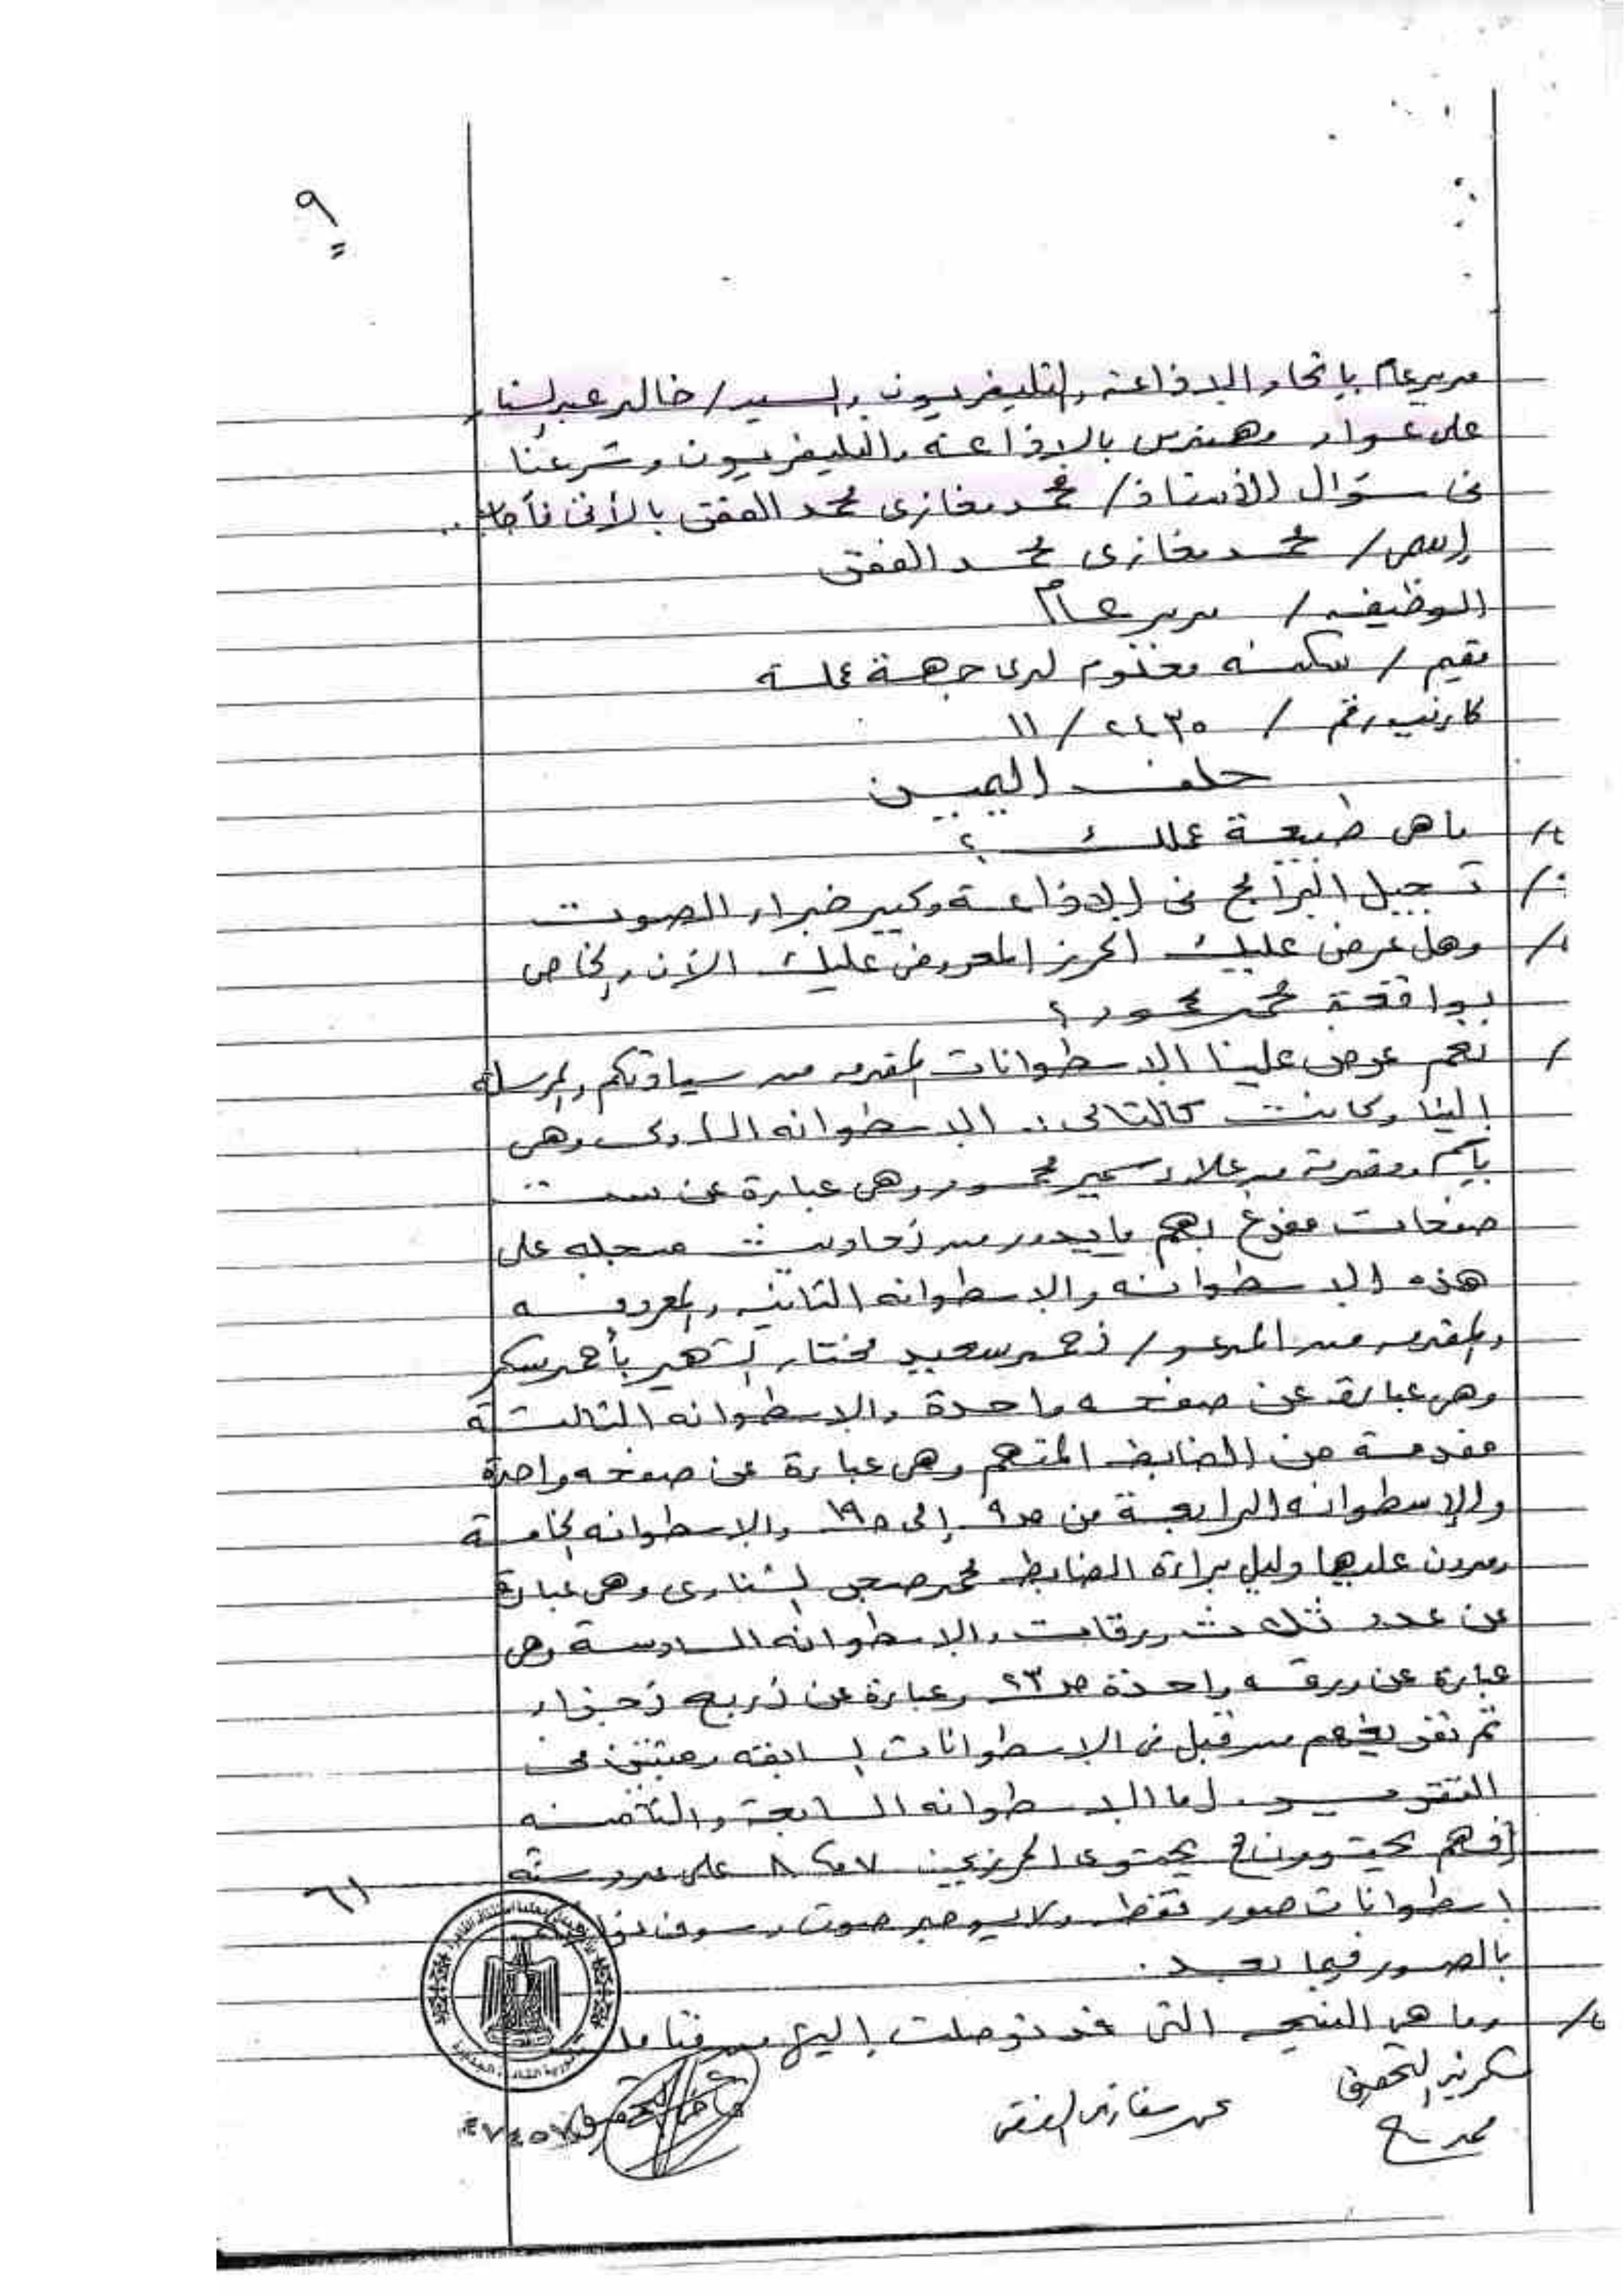 ٩
مدير عام باتحاد الاذاعة والتليفزيون والسيد/ خالد عبد الستار
على عواد مهندس بالاذاعة والتليفزيون وشرعنا
فى سؤال الأستاذ/ محمد مغازى محمد الفقى بالأتى فأجاب..
إسمى/ محمد مغازى محمد الفقى
الوظيفه / مدير عام
مقيم / سكنه معلوم لدى جهة عمله
كارنيه رقم / ٢٤٣٥ / ١١
حلف اليمين
س/ ما هى طبيعة عملك ؟
ج/ تسجيل البرامج فى الاذاعة وكبير خبراء الصوت
س/ وهل عرض عليك الحرز المعروض عليك الأن والخاص
بواقعة محمد محمود ؟
ج/ نعم عرض علينا الاسطوانات المقدمه من سيادتكم والمرسله
إلينا وكانت كالتالى :. الاسطوانه الاولى وهى
باسم ومقدمة من علاء سمير محمود وهى عبارة عن ست
صفحات مفرغ بهم ما يدور من أحاديث مسجله على
هذه الاسطوانه والاسطوانه الثانيه والمعروفه
والمقدمه من المدعو/ أحمد سعيد مختار الشهير بأحمد سكر
وهى عبارة عن صفحه واحدة والاسطوانه الثالثة
مقدمة من الضابط المتهم وهى عبارة عن صفحه واحدة
والإسطوانه الرابعة من ص٩ إلى ص١٩ والاسطوانه الخامسة
ومدون عليها دليل براءة الضابط محمد صبحى الشناوى وهى عبارة
عن عدد ثلاث ورقات والاسطوانه السادسة وهى
عبارة عن ورقه واحدة ص٢٣ وعبارة عن أربع أجزاء
تم تفريغهم من قبل فى الاسطوانات السابقه ومثبت فى
التقرير. أما الاسطوانه السابعة والثامنه
يحتوى الحرزين ٧ ، ٨ على عدد سته
اسطوانات صور فقط ولا يوجد صوت وسوف
بالصور فيما بعد .
س/ وما هى النتيجه التى قد توصلت إليها من
سكرتير التحقيق
محمد مغازى الفقى
قاضى التحقيق